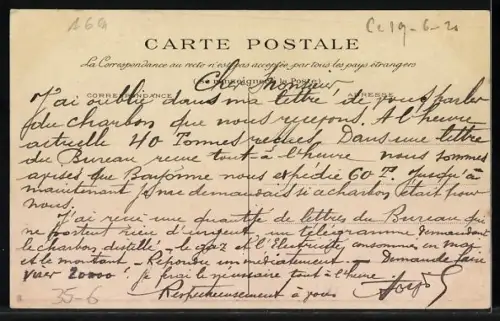 168
Ce 19-6-20
CARTE POSTALE
La Correspondance au recto n'est pas acceptée par tous les pays étrangers
(Se renseigner à la Poste)
CORRESPONDANCE
ADRESSE
Cher Monsieur
J'ai oublié dans ma lettre de vous parler
du charbon que nous recevons. A l'heure
actuelle 40 Tonnes reçues. Dans une lettre
du Bureau reçue tout à l'heure nous sommes
avisés que Bayonne nous expédie 60 T. jusqu'à
maintenant je me demandais si ce charbon était pour
nous.
J'ai reçu une quantité de lettres du Bureau qui
ne portent rien d'urgent, un télégramme demandant
le charbon distillé - le gaz et l'Electricité consommés en mai
et le montant - Répondu immédiatement - Demande faire
virer 20000! je ferai le nécessaire tout à l'heure
Respectueusement à vous
35-6